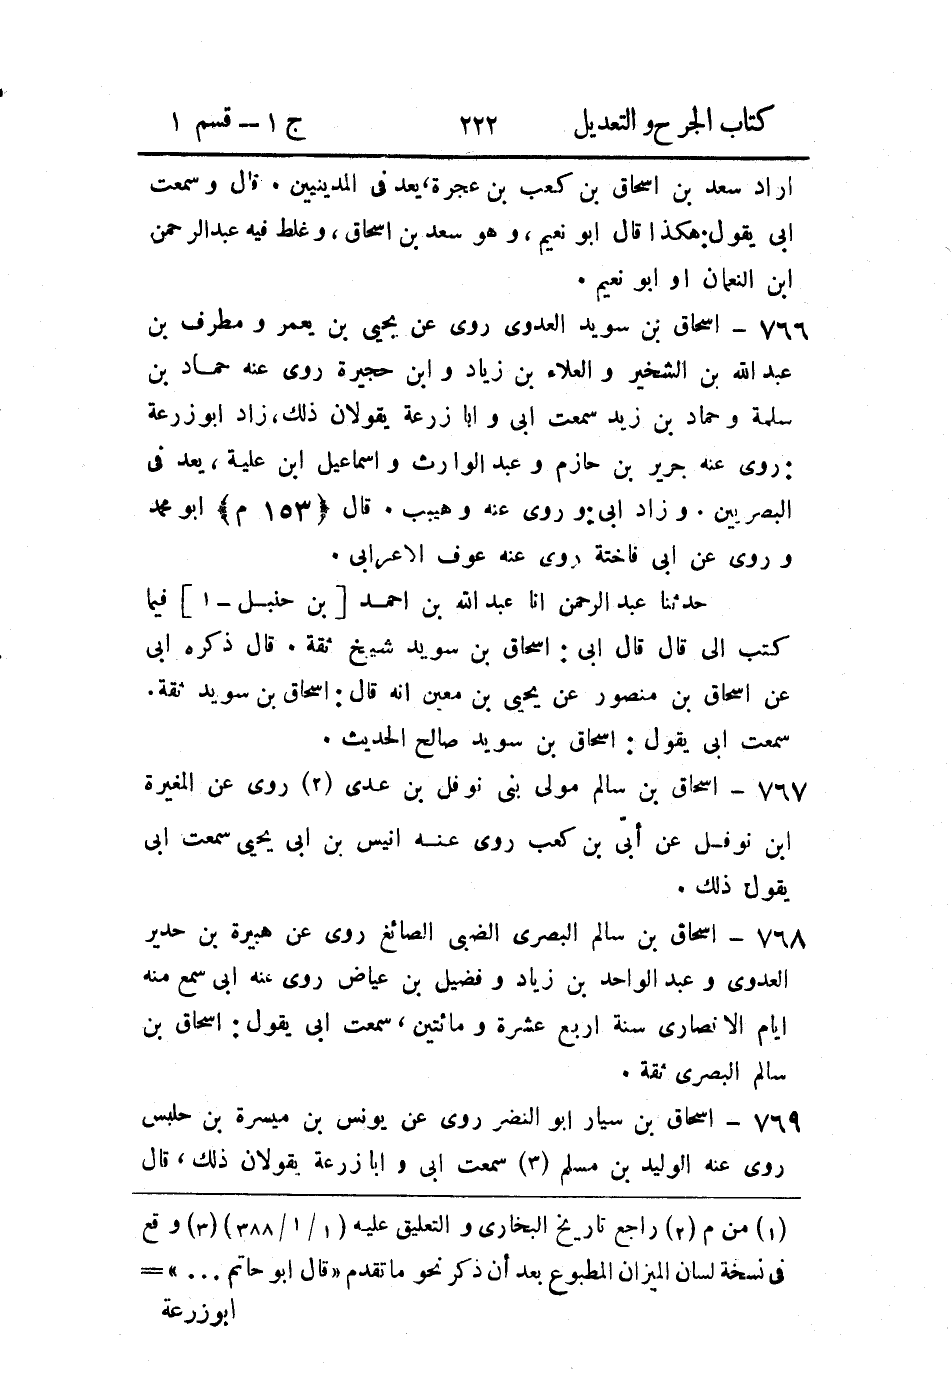 كتاب الجرح و التعديل ٢٢٢ ج ١ – قسم ١
اراد سعد بن اسحاق بن كعب بن عجرة، يعد فى المدينيين . قال و سمعت
ابى يقول: هكذا قال ابو نعيم، و هو سعد بن اسحاق، و غلط فيه عبدالرحمن
ابن النعمان او ابو نعيم .
٧٦٦ – اسحاق بن سويد العدوى روى عن يحيى بن يعمر و مطرف بن
عبد الله بن الشخير و العلاء بن زياد و ابن حجيرة روى عنه حماد بن
سلمة و حماد بن زيد سمعت ابى و ابا زرعة يقولان ذلك، زاد ابوزرعة
: روى عنه جرير بن حازم و عبد الوارث و اسماعيل ابن علية، يعد فى
البصريين . و زاد ابى: و روى عنه و هيب . قال ﴿١٥٣ م﴾ ابو محمد
و روى عن ابى فاختة روى عنه عوف الاعرابى .
حدثنا عبد الرحمن انا عبد الله بن احمد [ بن حنبل – ١ ] فيما
كتب الى قال قال ابى : اسحاق بن سويد شيخ ثقة . قال ذكره ابى
عن اسحاق بن منصور عن يحيى بن معين انه قال : اسحاق بن سويد ثقة .
سمعت ابى يقول : اسحاق بن سويد صالح الحديث .
٧٦٧ – اسحاق بن سالم مولى بنى نوفل بن عدى (٢) روى عن المغيرة
ابن نوفل عن أبىّ بن كعب روى عنه انيس بن ابى يحيى سمعت ابى
يقول ذلك .
٧٦٨ – اسحاق بن سالم البصرى الضبى الصائغ روى عن هبيرة بن حدير
العدوى و عبد الواحد بن زياد و فضيل بن عياض روى عنه ابى سمع منه
ايام الانصارى سنة اربع عشرة و مائتين، سمعت ابى يقول : اسحاق بن
سالم البصرى ثقة .
٧٦٩ – اسحاق بن سيار ابو النضر روى عن يونس بن ميسرة بن حلبس
روى عنه الوليد بن مسلم (٣) سمعت ابى و ابا زرعة يقولان ذلك، قال
(١) من م (٢) راجع تاريخ البخارى و التعليق عليه (١/١/٣٨٨) (٣) و قع
فى نسخة لسان الميزان المطبوع بعد أن ذكر نحو ماتقدم «قال ابو حاتم ... » =
ابوزرعة